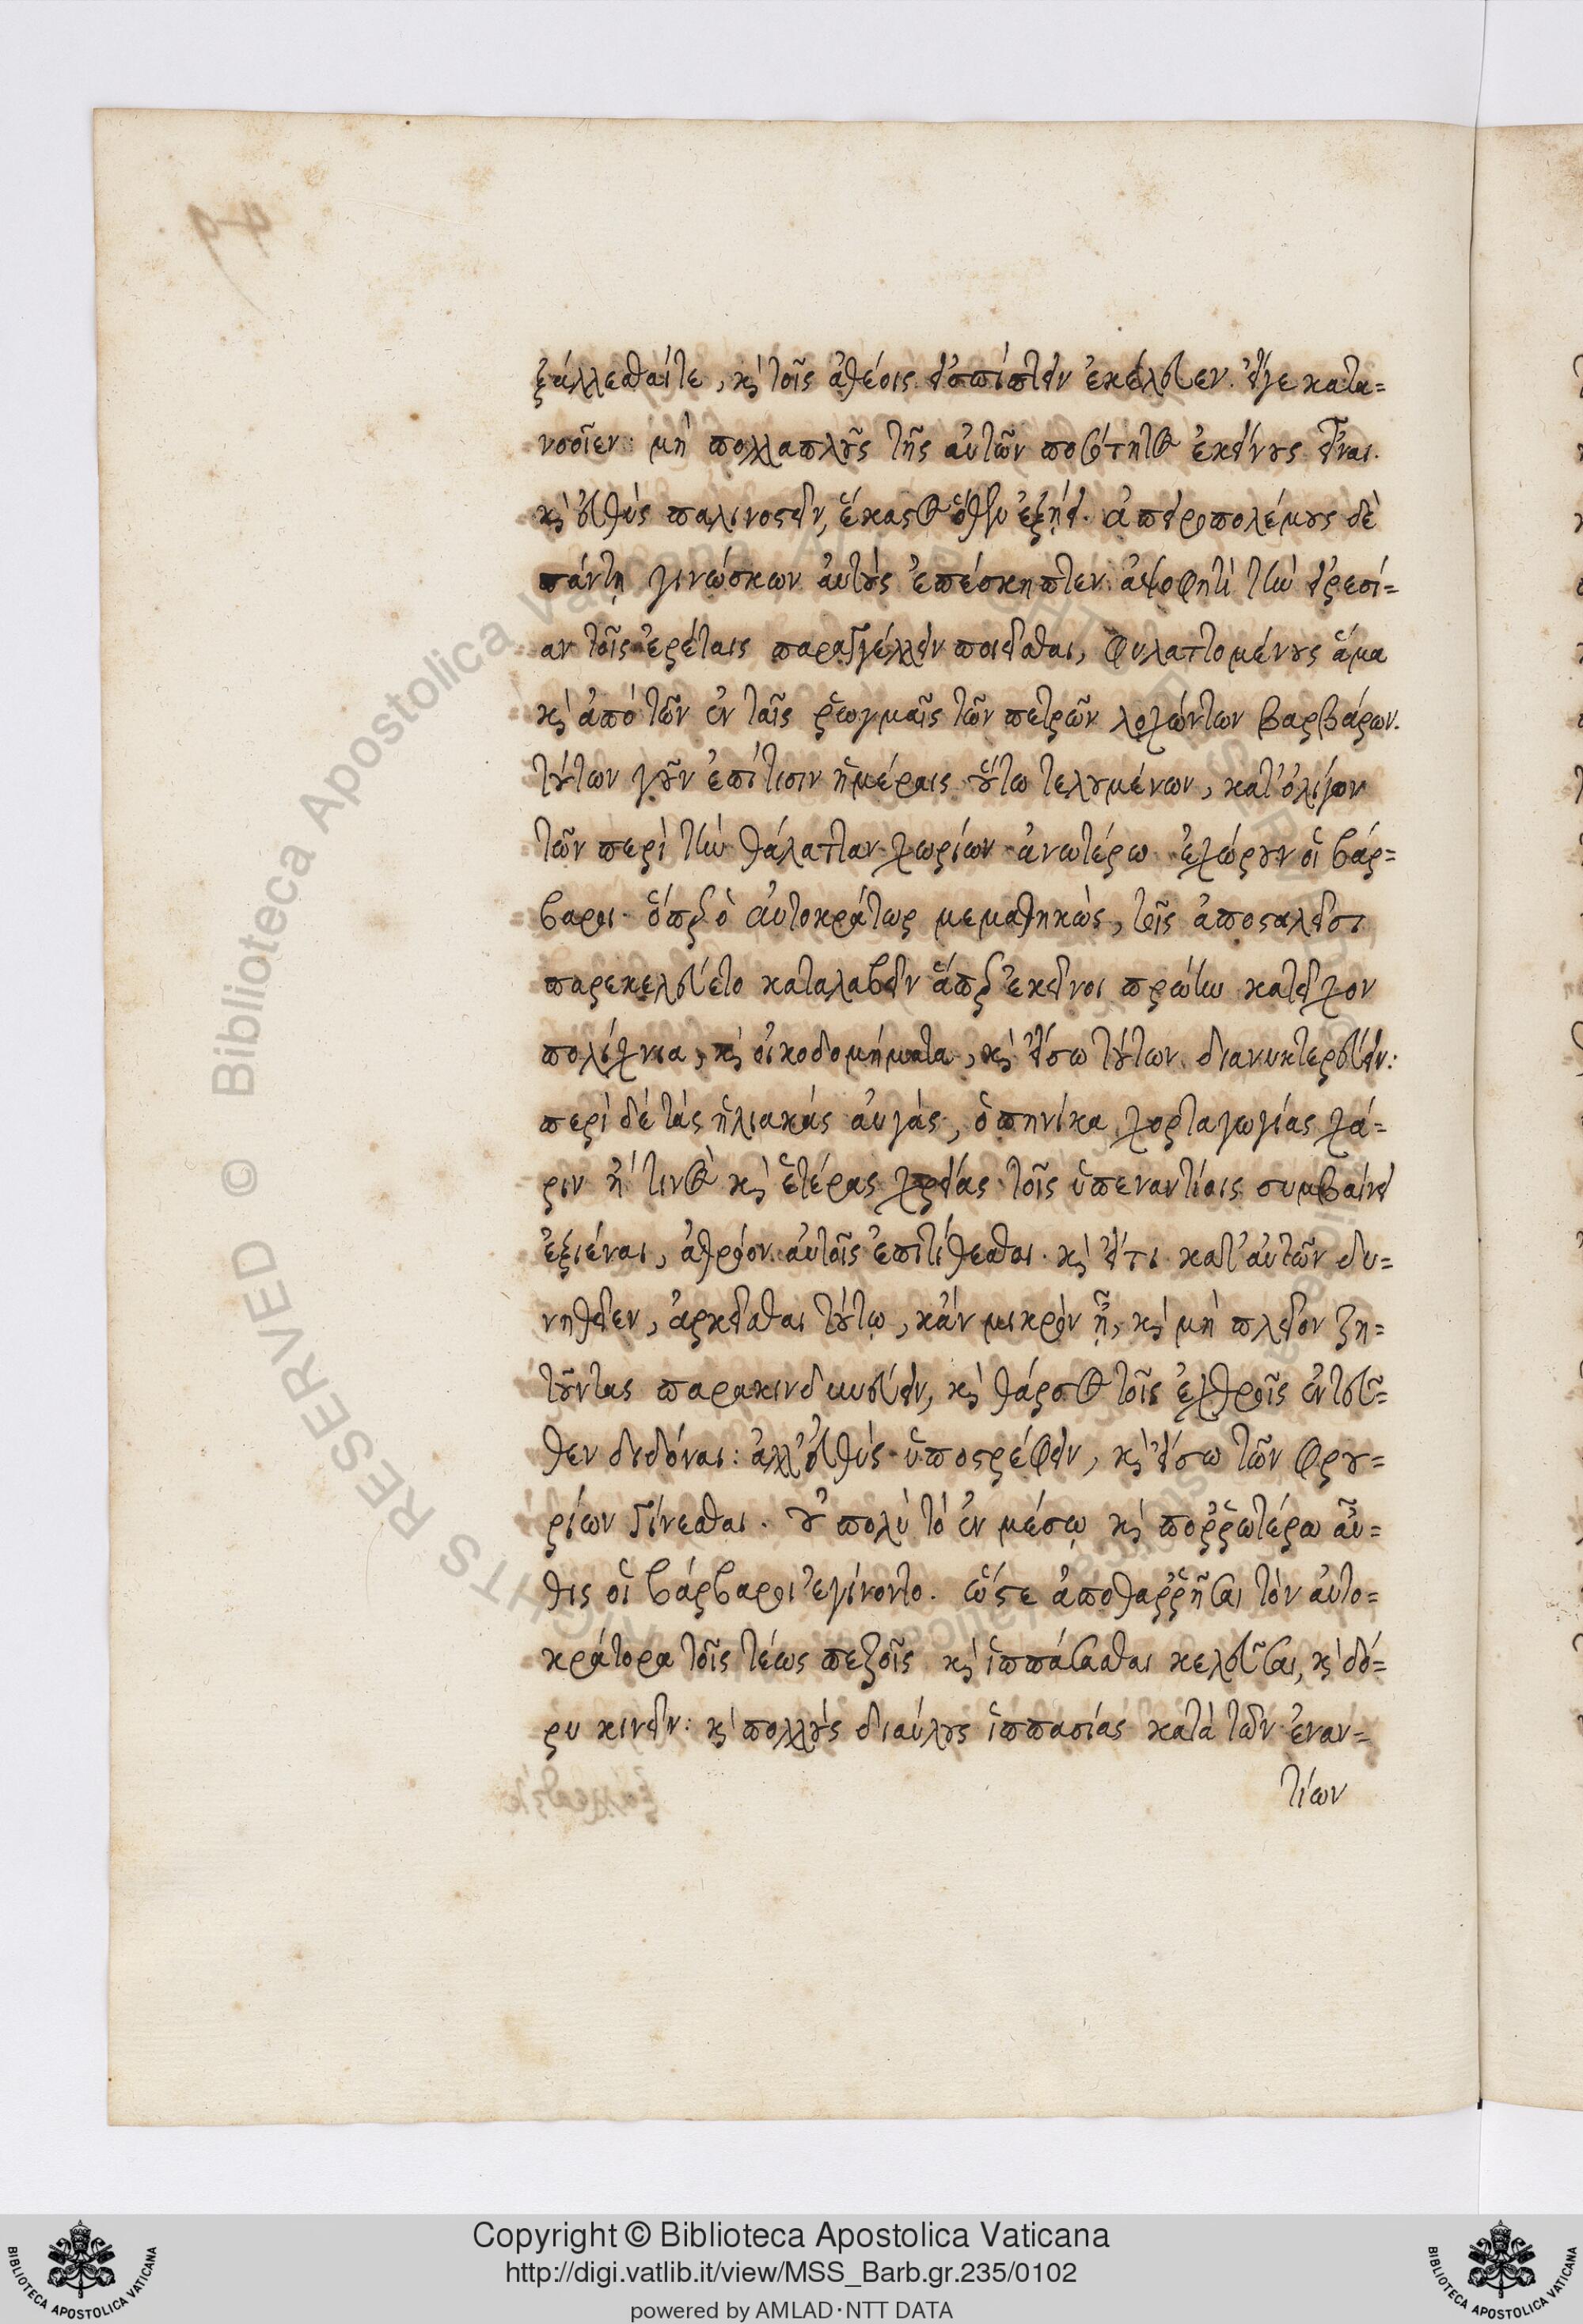 ξάλλεσθαί τε, καὶ τοῖς ἀθέοις εἰσπίπτειν ἐκέλευεν. εἴγε κατα=
νοοῖεν: μὴ πολλαπλοῦς τῆς αὐτῶν ποσότητος ἐκείνους εἶναι.
καὶ εὐθὺς παλινοστεῖν, ἕκαστος ὅθεν ἐξῄει. ἀπειροπολέμους δὲ
πάντῃ γινώσκων αὐτοὺς ἐπέσκηπτεν ἀψοφητὶ τὴν εἰρεσί=
αν τοῖς ἐρέταις παραγγέλλειν ποιεῖσθαι, φυλαττομένους ἅμα
καὶ ἀπὸ τῶν ἐν ταῖς ῥωγμαῖς τῶν πετρῶν λοχώντων βαρβάρων.
τούτων γοῦν ἐπί τισιν ἡμέραις οὕτω τελουμένων, κατ' ὀλίγον
τῶν περὶ τὴν θάλατταν χωρίων ἀνωτέρω ἐχώρουν οἱ βάρ=
βαροι. ὅπερ ὁ αὐτοκράτωρ μεμαθηκὼς, τοῖς ἀποσταλεῖσι
παρεκελεύετο καταλαβεῖν ἅπερ ἐκεῖνοι πρώτω κατεῖχον
πολίχνια, καὶ οἰκοδομήματα, καὶ εἴσω τούτων διανυκτερεύειν:
περὶ δὲ τὰς ἡλιακὰς αὐγάς, ὁπηνίκα χορταγωγίας χά=
ριν ἤ τινος καὶ ἑτέρας χρείας τοῖς ὑπεναντίοις συμβαίνει
ἐξιέναι, ἀθρόον αὐτοῖς ἐπιτίθεσθαι. καὶ εἴ τι κατ' αὐτῶν δυ=
νηθεῖεν, ἀρκεῖσθαι τούτῳ, κἂν μικρὸν ᾖ, καὶ μὴ πλεῖον ζη=
τοῦντας παρακινδυνεύειν, καὶ θάρσος τοῖς ἐχθροῖς ἐντεῦ=
θεν διδόναι: ἀλλ' εὐθὺς ὑποστρέφειν, καὶ εἴσω τῶν φρου=
ρίων γίνεσθαι. οὐ πολὺ τὸ ἐν μέσῳ καὶ πορῥωτέρω αὖ=
θις οἱ βάρβαροι ἐγίνοντο. ὥστε ἀποθαρῥῆσαι τὸν αὐτο=
κράτορα τοῖς τέως πεζοῖς καὶ ἱππάσασθαι κελεῦσαι, καὶ δό=
ρυ κινεῖν: καὶ πολλοὺς διαύλους ἱππασίας κατὰ τῶν ἐναν=
τίων
Copyright © Biblioteca Apostolica Vaticana
http://digi.vatlib.it/view/MSS_Barb.gr.235/0102
powered by AMLAD·NTT DATA
BIBLIOTECA APOSTOLICA VATICANA
BIBLIOTECA APOSTOLICA VATICANA